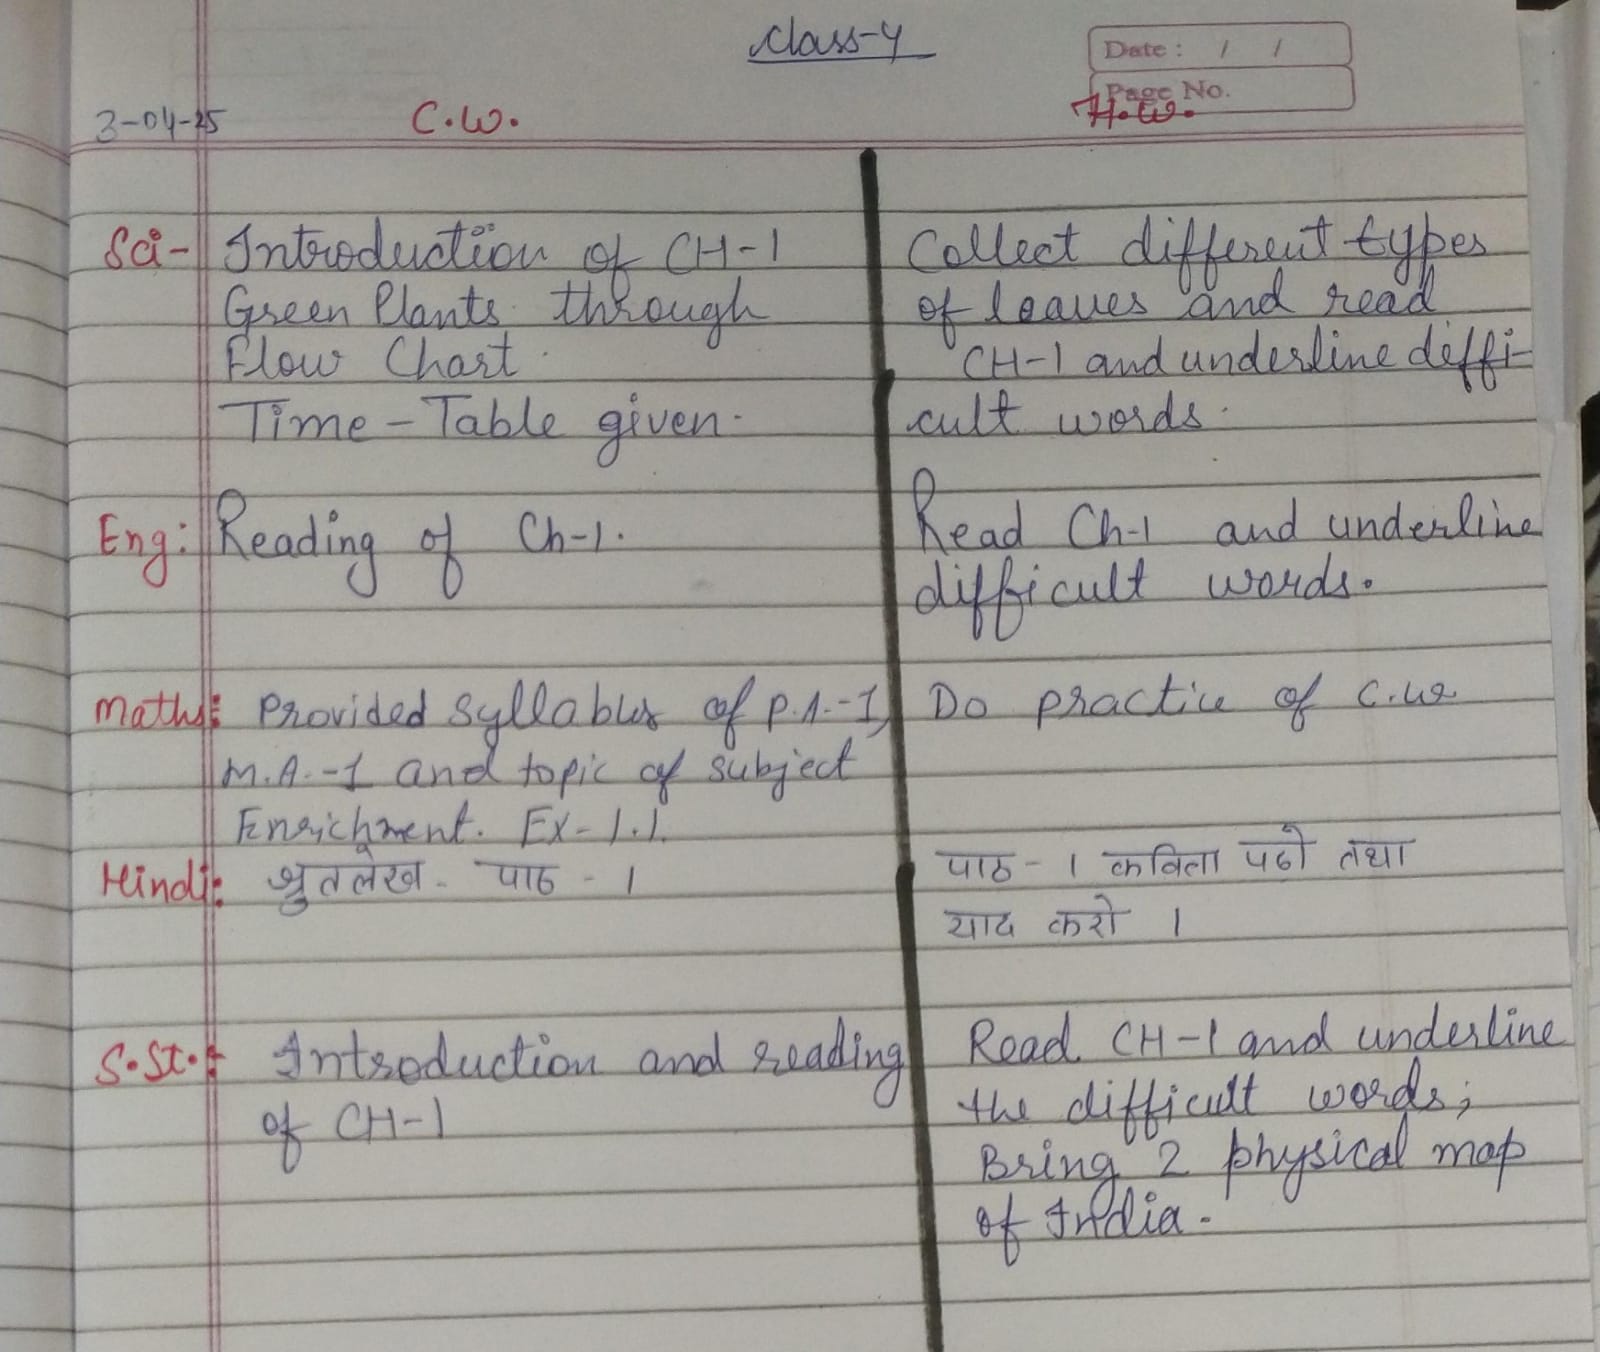 Class-4
Date : / /
Page No.
3-04-25 C.W. H.W.
Sci- Introduction of CH-1
Green Plants through
Flow Chart.
Time-Table given.
Collect different types
of leaves and read
CH-1 and underline diffi-
cult words.
Eng: Reading of Ch-1.
Read Ch-1 and underline
difficult words.
Maths: Provided syllabus of P.A.-1,
M.A.-1 and topic of subject
Enrichment. Ex-1.1.
Do practice of C.W
Hindi: श्रुतलेख - पाठ - 1
पाठ - 1 कविता पढो तथा
याद करो ।
S.St.: Introduction and reading
of CH-1
Read CH-1 and underline
the difficult words;
Bring 2 physical map
of India.